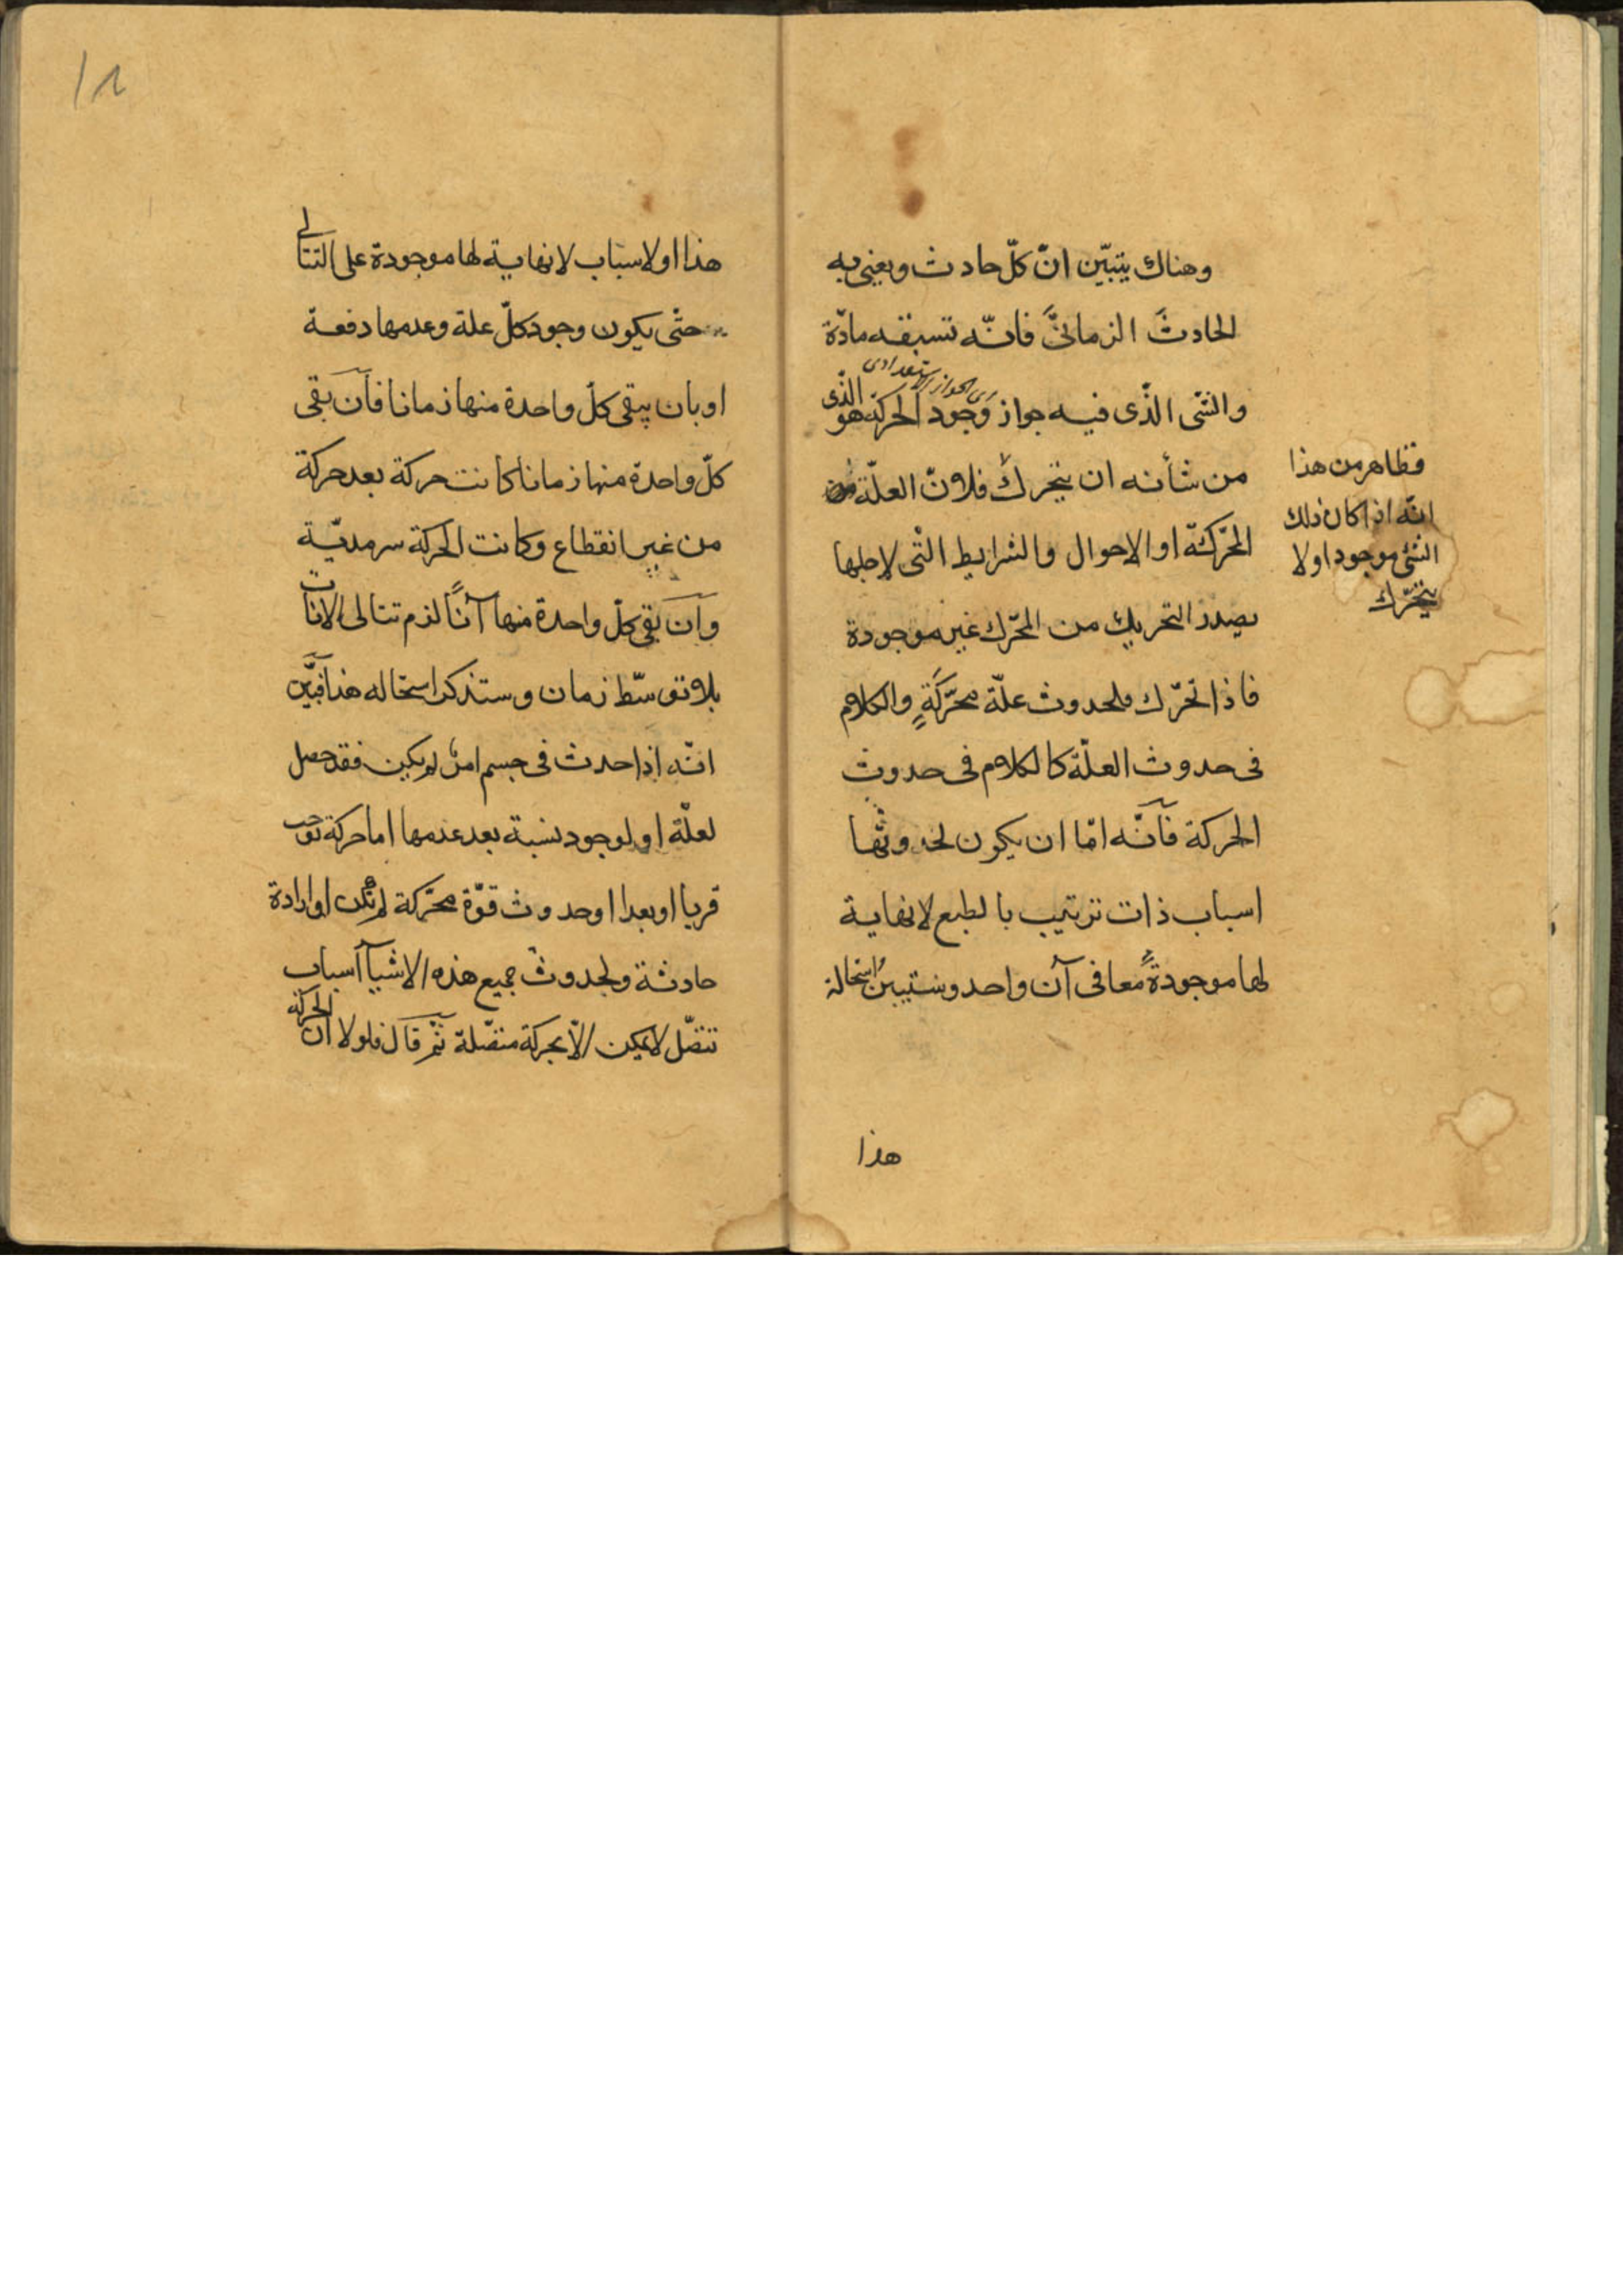 وهناك يتبيّن انّ كلّ حادث ويعنى به
الحادثَ الزمانىَّ فانّه تسبقه مادّة
اى الجواز الاستعدادى
والشئ الذّى فيه جواز وجود الحركة هو الذّى
من شأنه ان يتحرك فلانّ العلّة
المحّركة او الاحوال والشرايط التّى لاجلها
يصدر التحريك من المحّرك غير موجودة
فاذا تحّرك فلحدوث علّة محّركةٍ والكلام
فى حدوث العلّة كالكلام فى حدوث
الحركة فآنّه امّا ان يكون لحدوثها
اسباب ذات ترتيب بالطبع لا نهاية
لها موجودةً معا فى آن واحد وسنتبيّن استحالة
هذا
فظاهر من هذا
انّه اذا كان ذلك
الشئ موجودا ولا
يتحّرك
١٨
هذا او لاسباب لا نهاية لها موجودة على التتالى
حتّى يكون وجود كلّ علة وعدمها دفعة
او بان يبقى كلّ واحدة منها زمانا فآن بقى
كلّ واحدة منها زمانا كانت حركة بعد حركة
من غير انقطاع وكانت الحركة سرمديّة
وآن بقى كلّ واحدة منها آناً لزم تتالى الانات
بلا توسّط زمان وستذكر استحاله هذا فبيَّن
انّه اذا حدث فى جسم امرٌ لم يكن فقد حصل
لعلّة او لوجود نسبة بعد عدمها اما حركة توجب
قربا او بعدا او حدوث قوّة محّركة لم تكن او ارادة
حادثة ولحدوث جميع هذه الاشيآ اسباب
تتصّل لا يمكن الاّ بحركة متصّلة ثم قال فلولا انّ الحركة